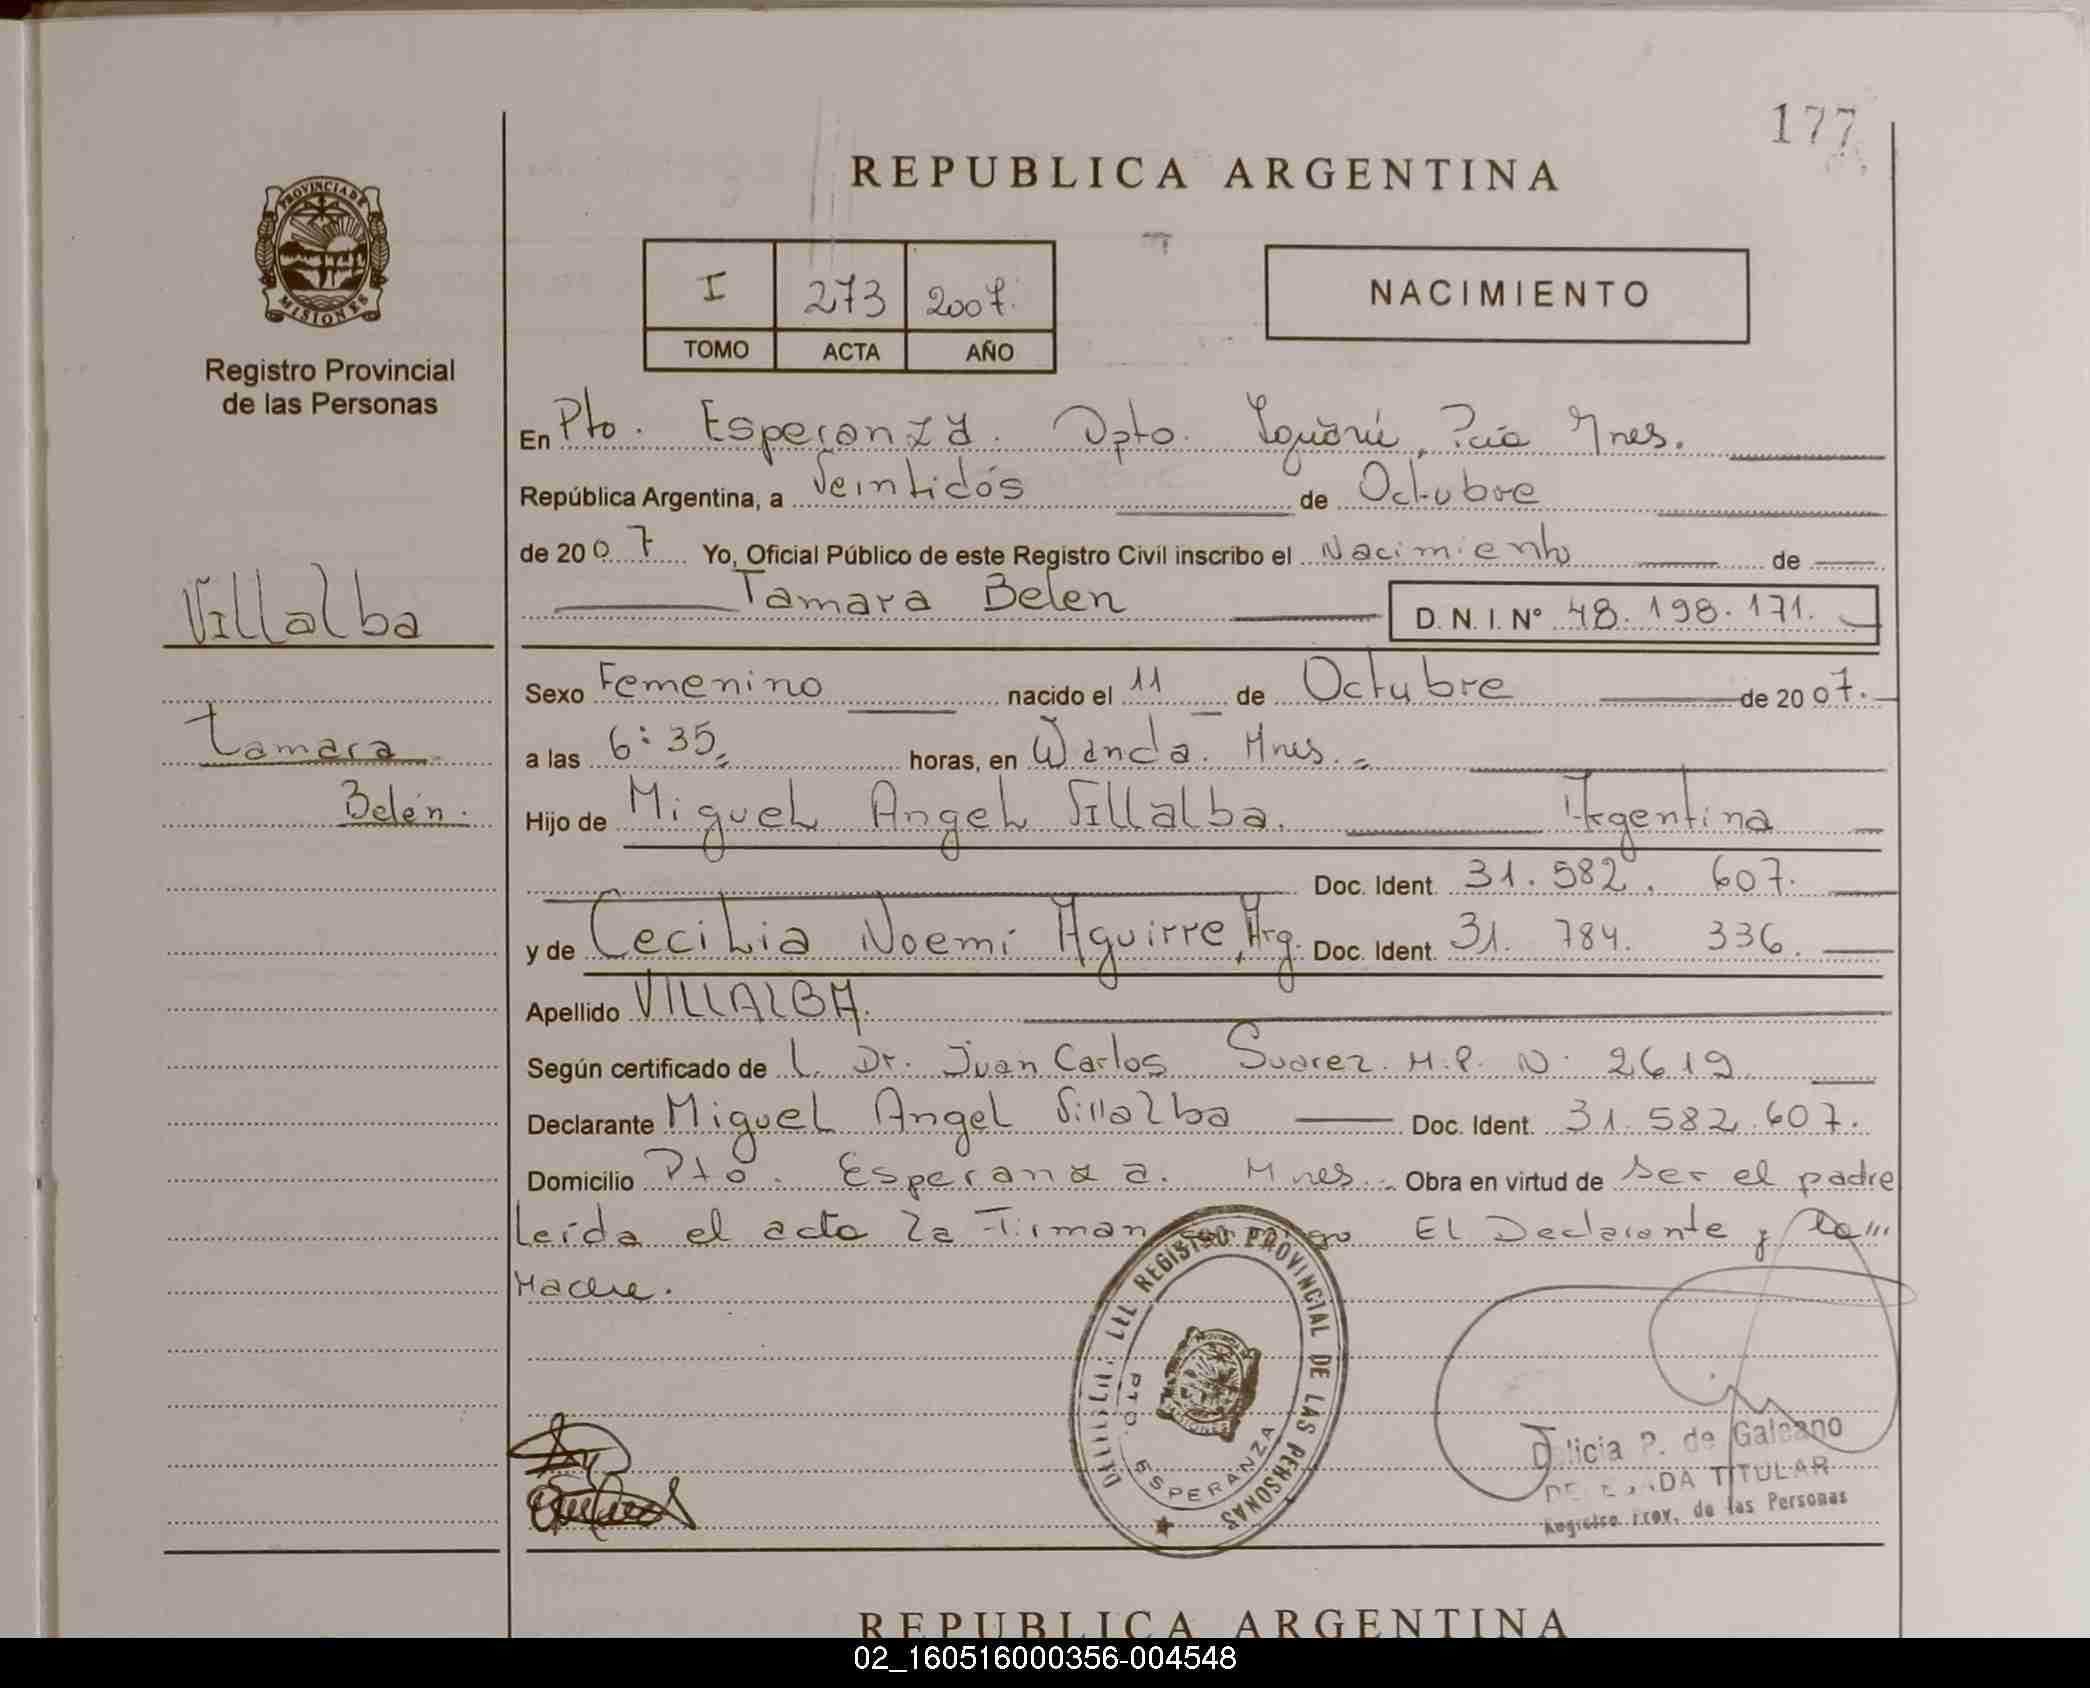 177
REPUBLICA ARGENTINA
PROVINCIA DE
MISIONES
Registro Provincial
de las Personas
I 273 2007.
TOMO ACTA AÑO
NACIMIENTO
En Pto. Esperanza. Dpto. Iguazú, Pcia Mnes.
República Argentina, a Veintidós de Octubre
de 2007 Yo, Oficial Público de este Registro Civil inscribo el Nacimiento de
Tamara Belen D.N.I. Nº 48.198.171.
Villalba
Tamara
Belén.
Sexo Femenino nacido el 11 de Octubre de 2007.
a las 6:35 horas, en Wanda. Mnes.
Hijo de Miguel Angel Villalba. Argentina
Doc. Ident. 31.582.607.
y de Cecilia Noemi Aguirre, Arg. Doc. Ident. 31.784.336.
Apellido VILLALBA.
Según certificado de L. Dr. Juan Carlos Suarez. M.P. N. 2619
Declarante Miguel Angel Villalba Doc. Ident. 31.582.607.
Domicilio Pto. Esperanza. Mnes. Obra en virtud de ser el padre
Leída el acta la Firman El Declarante y la
Madre.
REGISTRO PROVINCIAL DE LAS PERSONAS
PTO. ESPERANZA
licia P. de Galeano
TITULAR
Registro Prov. de las Personas
REPUBLICA ARGENTINA
02_160516000356-004548